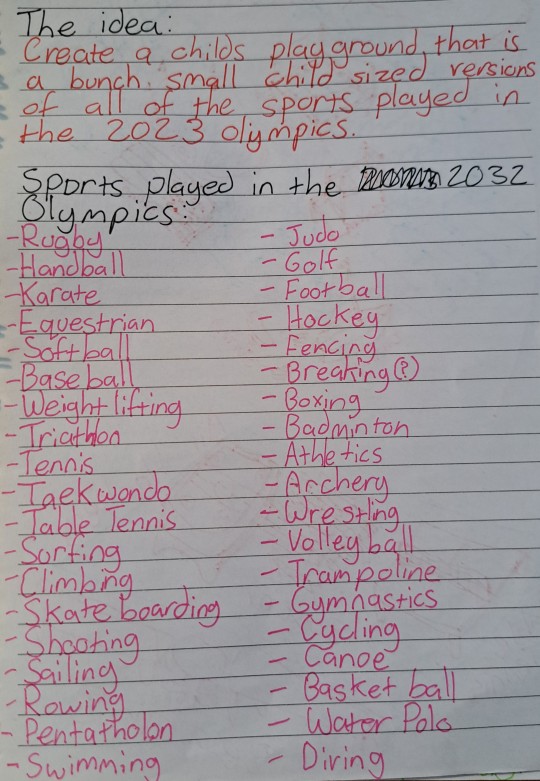 The idea:
Create a childs playground, that is
a bunch small child sized versions
of all of the sports played in
the 2023 olympics.
Sports played in the 2032
Olympics:
- Rugby
- Handball
- Karate
- Equestrian
- Softball
- Baseball
- Weightlifting
- Triathlon
- Tennis
- Taekwondo
- Table Tennis
- Surfing
- Climbing
- Skateboarding
- Shooting
- Sailing
- Rowing
- Pentatholon
- Swimming
- Judo
- Golf
- Football
- Hockey
- Fencing
- Breaking(?)
- Boxing
- Badminton
- Athletics
- Archery
- Wrestling
- Volleyball
- Trampoline
- Gymnastics
- Cycling
- Canoe
- Basket ball
- Water Polo
- Diving